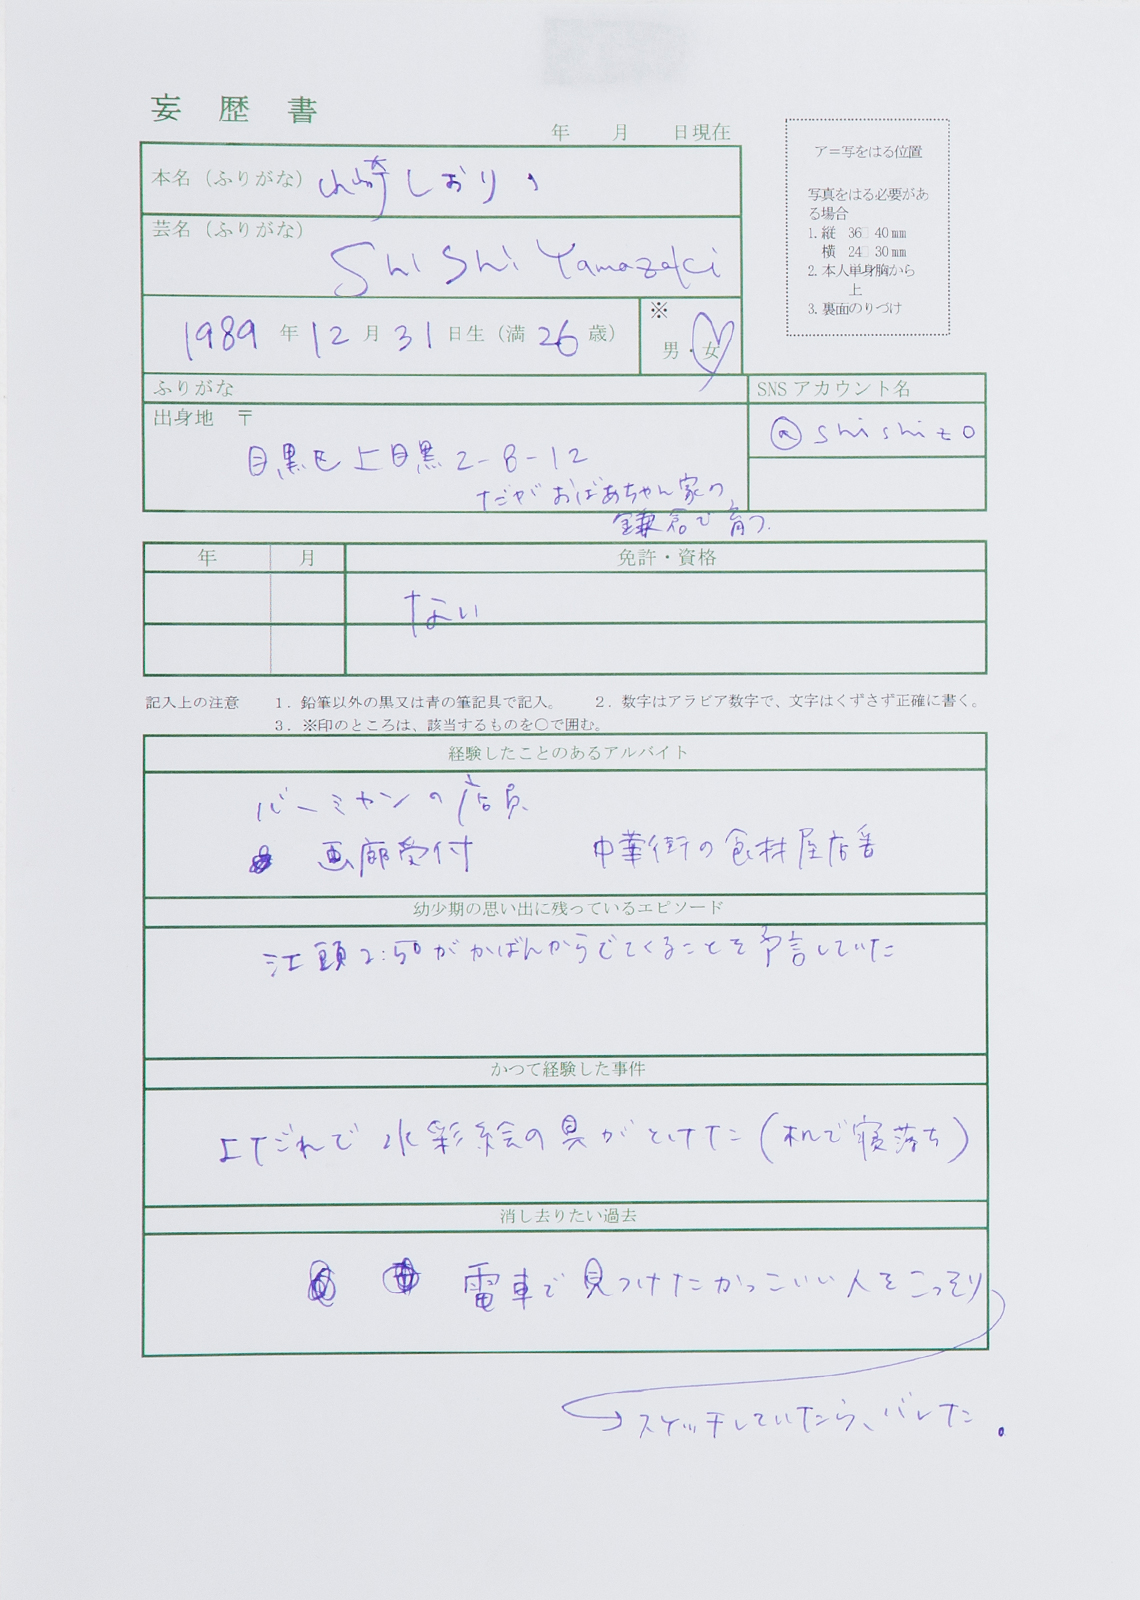 妄歴書
年 月 日現在
本名（ふりがな） 山崎しおり
芸名（ふりがな）
ShiShi Yamazaki
1989 年 12 月 31 日生（満 26 歳）
※
男・女
ア＝写をはる位置
写真をはる必要があ
る場合
1. 縦 36 40 mm
横 24 30 mm
2. 本人単身胸から
上
3. 裏面のりづけ
ふりがな
SNS アカウント名
出身地 〒
@shishizo
目黒区上目黒2-8-12
だがおばあちゃん家の
鎌倉で育つ.
年 月 免許・資格
ない
記入上の注意 1．鉛筆以外の黒又は青の筆記具で記入。 2．数字はアラビア数字で、文字はくずさず正確に書く。
3．※印のところは、該当するものを〇で囲む。
経験したことのあるアルバイト
バーミヤンの店員
画廊受付 中華街の食材屋店番
幼少期の思い出に残っているエピソード
江頭2:50がかばんからでてくることを予言していた
かつて経験した事件
よだれで水彩絵の具がとけた（机で寝落ち）
消し去りたい過去
電車で見つけたかっこいい人をこっそり
スケッチしていたら、バレた。